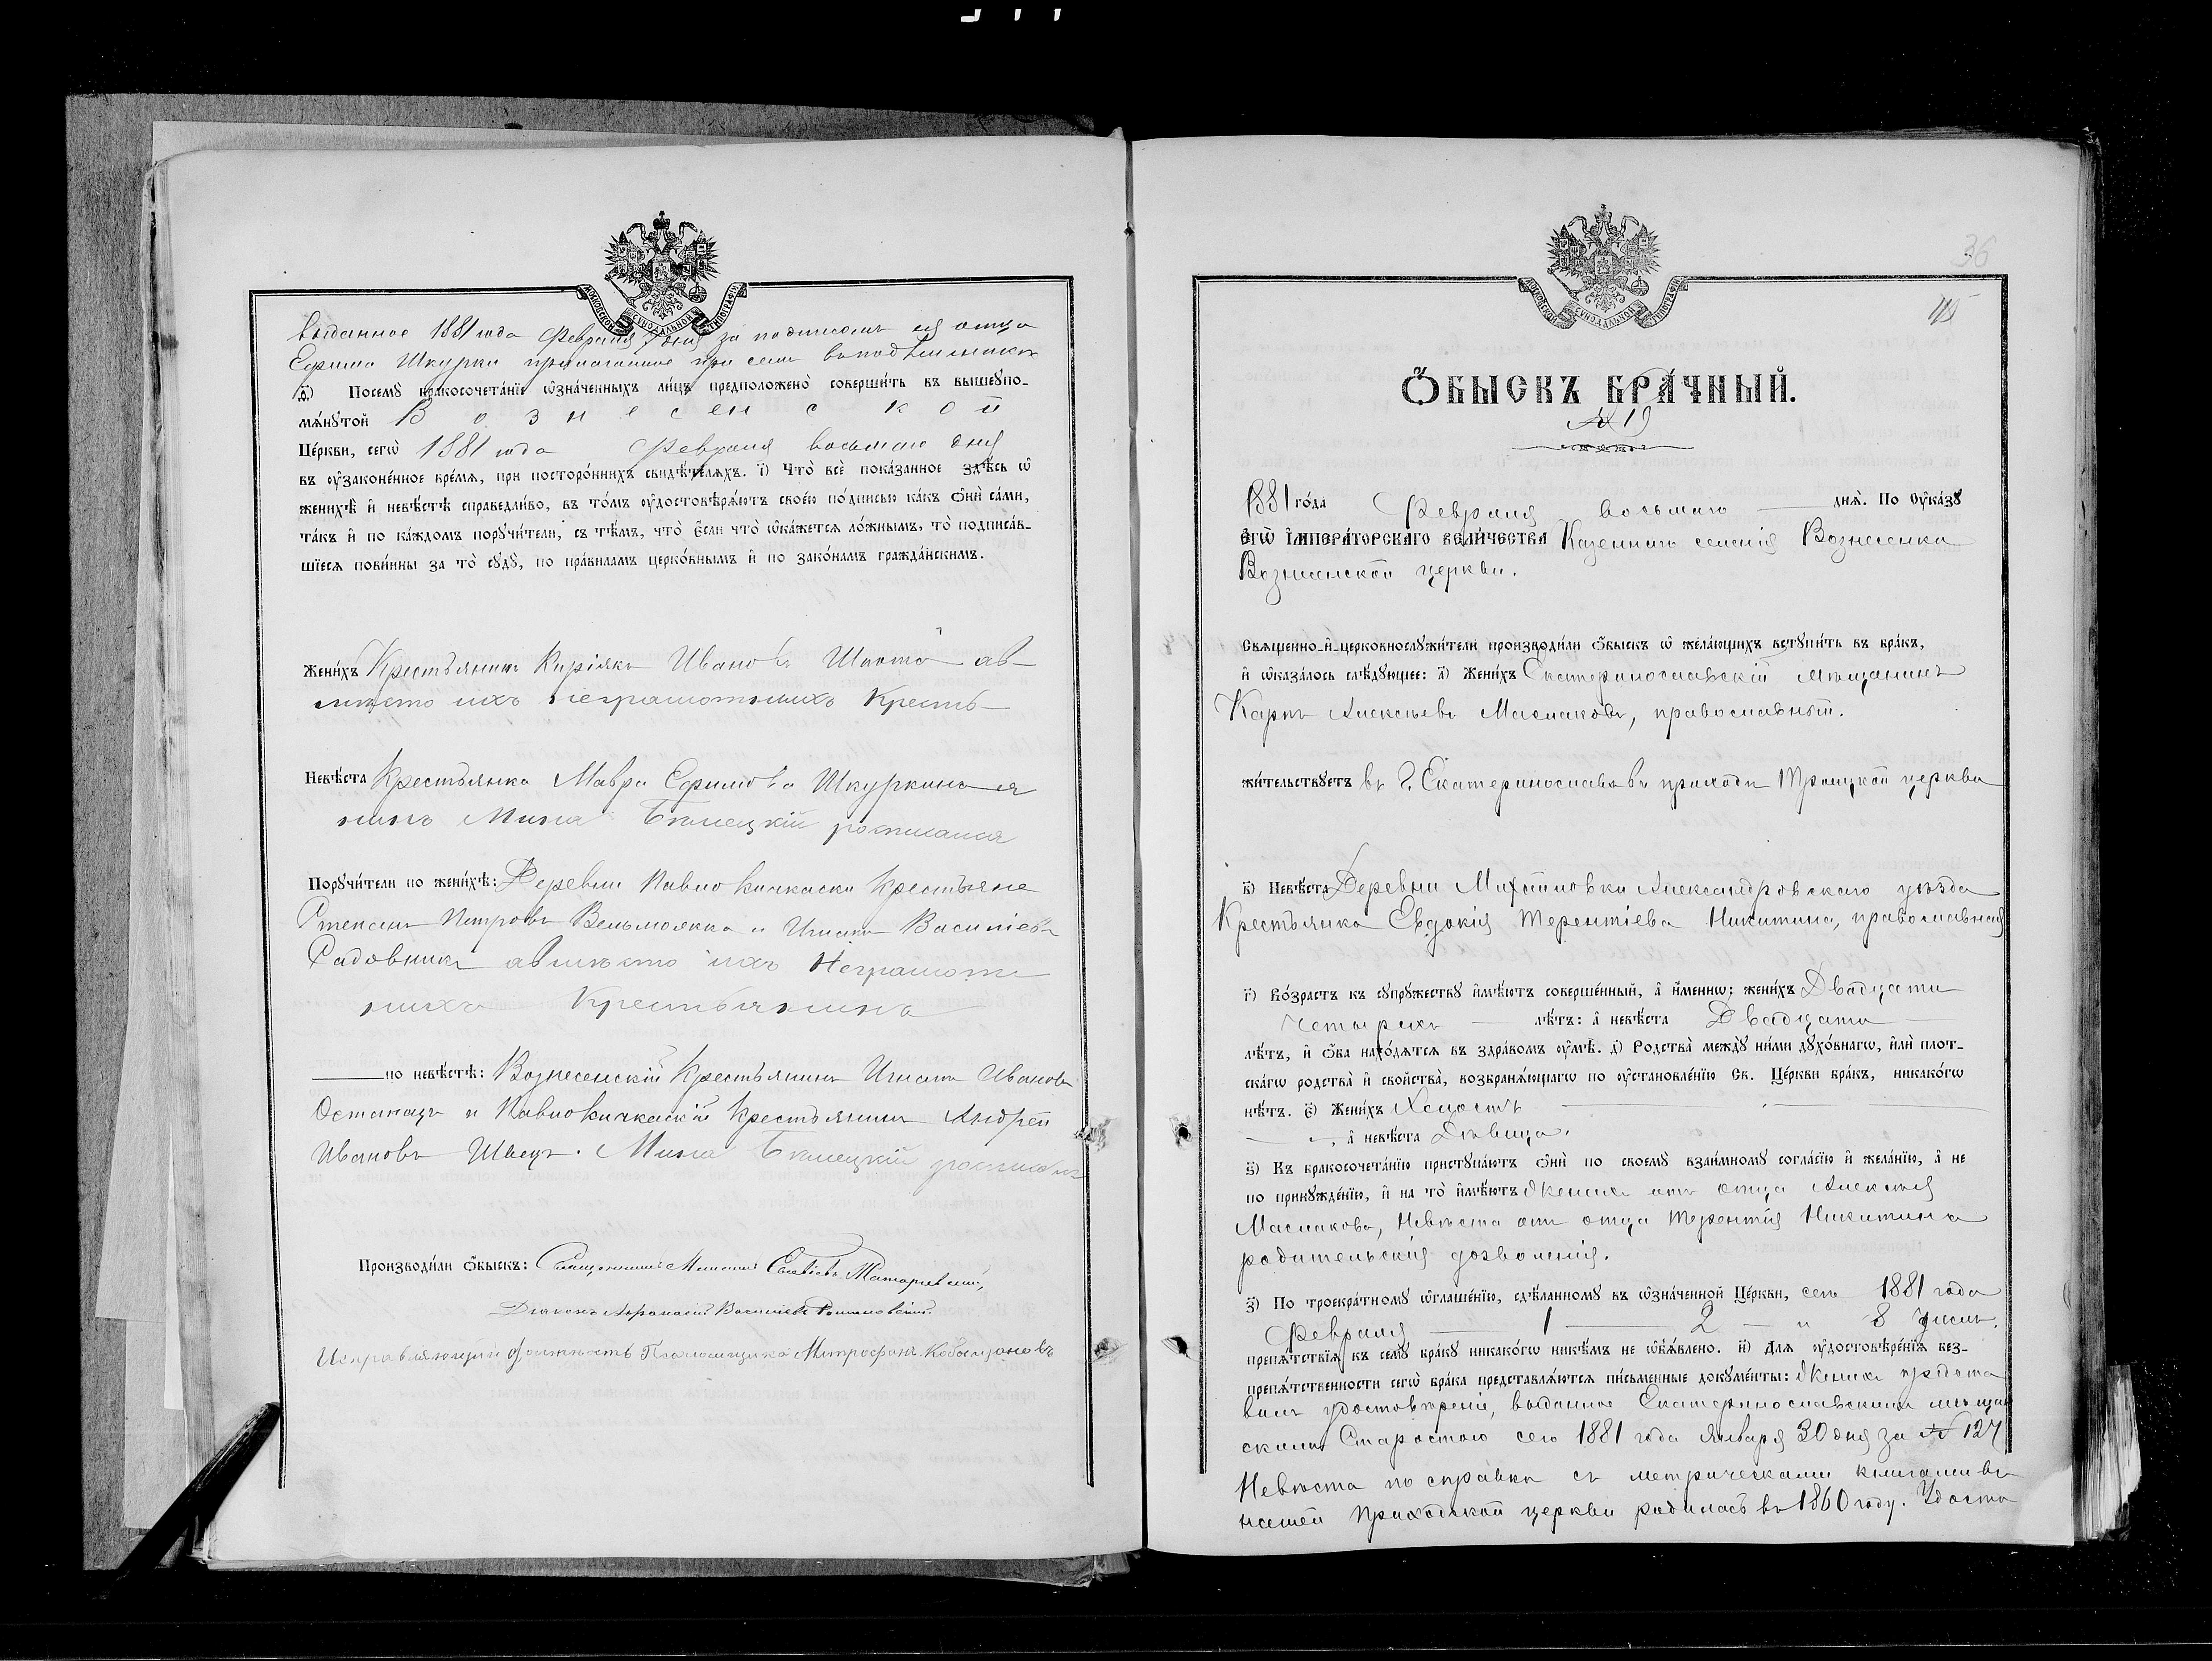 МОСКОВСКОЙ СѴНОДАЛЬНОЙ ТИПОГРАФІИ
выданное 1881 года Февраля дня за подписомъ ея отца
Ефима Шкурки прилагаемое при семъ въ подлинникѣ
Посемꙋ бракосочета́нїе ѡ҆зна́ченныхъ ли́цъ предположено̀ соверши́ть въ вышеꙋпо-
мѧ́нꙋтой Вознесенской
Це́ркви, сегѡ̀ 1881 года Февраля восьмаго дня
въ ᲂу҆зако́ненное вре́мѧ, при посторо́ннихъ свидѣ́телѧхъ. і҃) Что̀ всѐ пока́занное здѣ́сь ѡ҆
женихѣ̀ и҆ невѣ́стѣ справедли́во, въ то́мъ ᲂу҆достовѣрѧ́ютъ свое́ю по́дписью ка́къ ѻ҆нѝ са́ми,
та́къ и҆ по ка́ждомъ порꙋчи́тели, съ тѣ́мъ, что̀ є҆́сли что̀ ѡ҆ка́жетсѧ ло́жнымъ, то̀ подписа́в-
шїесѧ пови́нны за то̀ сꙋдꙋ̀, по пра́виламъ церко́внымъ и҆ по зако́намъ гражда́нскимъ.
Жени́хъ Крестьянинъ Киріякъ Ивановъ ав-
мѣсто ихъ неграмотныхъ Кресть-
Невѣ́ста Крестьянка Мавра Ефимова Шкуркина ея
нинъ Мина Бѣлецкій росписался
Порꙋчи́тели по женихѣ̀: Деревни Павлокичкаски Крестьяне
Петровъ и Игнатъ Василіевъ
Садовникъ авмѣсто ихъ Неграмот
ныхъ Крестьянинъ
по невѣ́стѣ: Вознесенскій Крестьянинъ Игнатъ Ивановъ
Остапацъ и Павлокичкаскій Крестьянинъ Андрей
Ивановъ Швецъ. Мина Бѣлецкій росписался
Производи́ли ѻ҆́быскъ: Священникъ
Діаконъ Афанасій Василіевъ Романовскій.
Исправляющій должность Псаломщика Митрофанъ
36
МОСКОВСКОЙ СѴНОДАЛЬНОЙ ТИПОГРАФІИ
Ѻ҆́БЫСКЪ БРА́ЧНЫЙ.
№ 19
1881 го́да Февраля восьмаго дня̀. По Оу҆ка́зꙋ
є҆гѡ̀ і҆мпера́торскагѡ вели́чества Казеннаго селенія Вознесенка
Вознесенской церкви.
Свѧще́нно-и҆-церковнослꙋжи́тели производи́ли ѻ҆́быскъ ѡ҆ жела́ющихъ встꙋпи́ть въ бра́къ,
и҆ ѡ҆каза́лось слѣ́дꙋющее: а҃) Жени́хъ Екатеринославскій мѣщанинъ
Карпъ Алексѣевъ Маслаковъ, православный.
жи́тельствꙋетъ въ г. Екатеринославѣ въ приходѣ Троицкой церкви
в҃) Невѣ́ста Деревни Александровскаго уѣзда
Крестьянка Евдокія Терентіева Никитина, православная
г҃) Во́зрастъ къ сꙋпрꙋ́жествꙋ и҆мѣ́ютъ соверше́нный, а҆ и҆́меннѡ: жени́хъ Двадцати
четырехъ лѣ́тъ: а҆ невѣ́ста Двадцати
лѣ́тъ, и҆ ѻ҆́ба нахо́дѧтсѧ въ здра́вомъ ᲂу҆мѣ̀. д҃) Родства̀ междꙋ̀ ни́ми дꙋхо́внагѡ, и҆лѝ плот-
ска́гѡ родства̀ и҆ сво́йства, возбранѧ́ющагѡ по ᲂу҆становле́нїю Св. Це́ркви бра́къ, никако́гѡ
нѣ́тъ. є҃) Жени́хъ Холостъ
а҆ невѣ́ста Дѣвица.
ѕ҃) Къ бракосочета́нїю пристꙋпа́ютъ ѻ҆нѝ по своемꙋ̀ взаи́мномꙋ согла́сїю и҆ жела́нїю, а҆ не
по принꙋжде́нїю, и҆ на то̀ и҆мѣ́ютъ женихъ отъ отца Алексѣя
Маслакова, Невѣста отъ отца Терентія Никитина
родительскія дозволенія.
з҃) По троекра́тномꙋ ѡ҆глаше́нїю, сдѣ́ланномꙋ въ ѡ҆зна́ченной Це́ркви, сего 1881 года
Февраля 1 2 и 8 числъ.
препѧ́тствїѧ къ семꙋ̀ бра́кꙋ никако́гѡ никѣ́мъ не ѡ҆б̾ѧ́влено. и҃) Для ᲂу҆достовѣре́нїѧ без-
препѧ́тственности сегѡ̀ бра́ка представлѧ́ютсѧ пи́сьменные докꙋме́нты: женихъ предста
вилъ удостовѣреніе, выданное Екатеринославскимъ мѣщан
скимъ Старостою сего 1881 года Января 30 дня за № 127
Невѣста по справкѣ съ метрическими книгами въ
нашей приходской церкви родилась въ 1860 году. Удосто